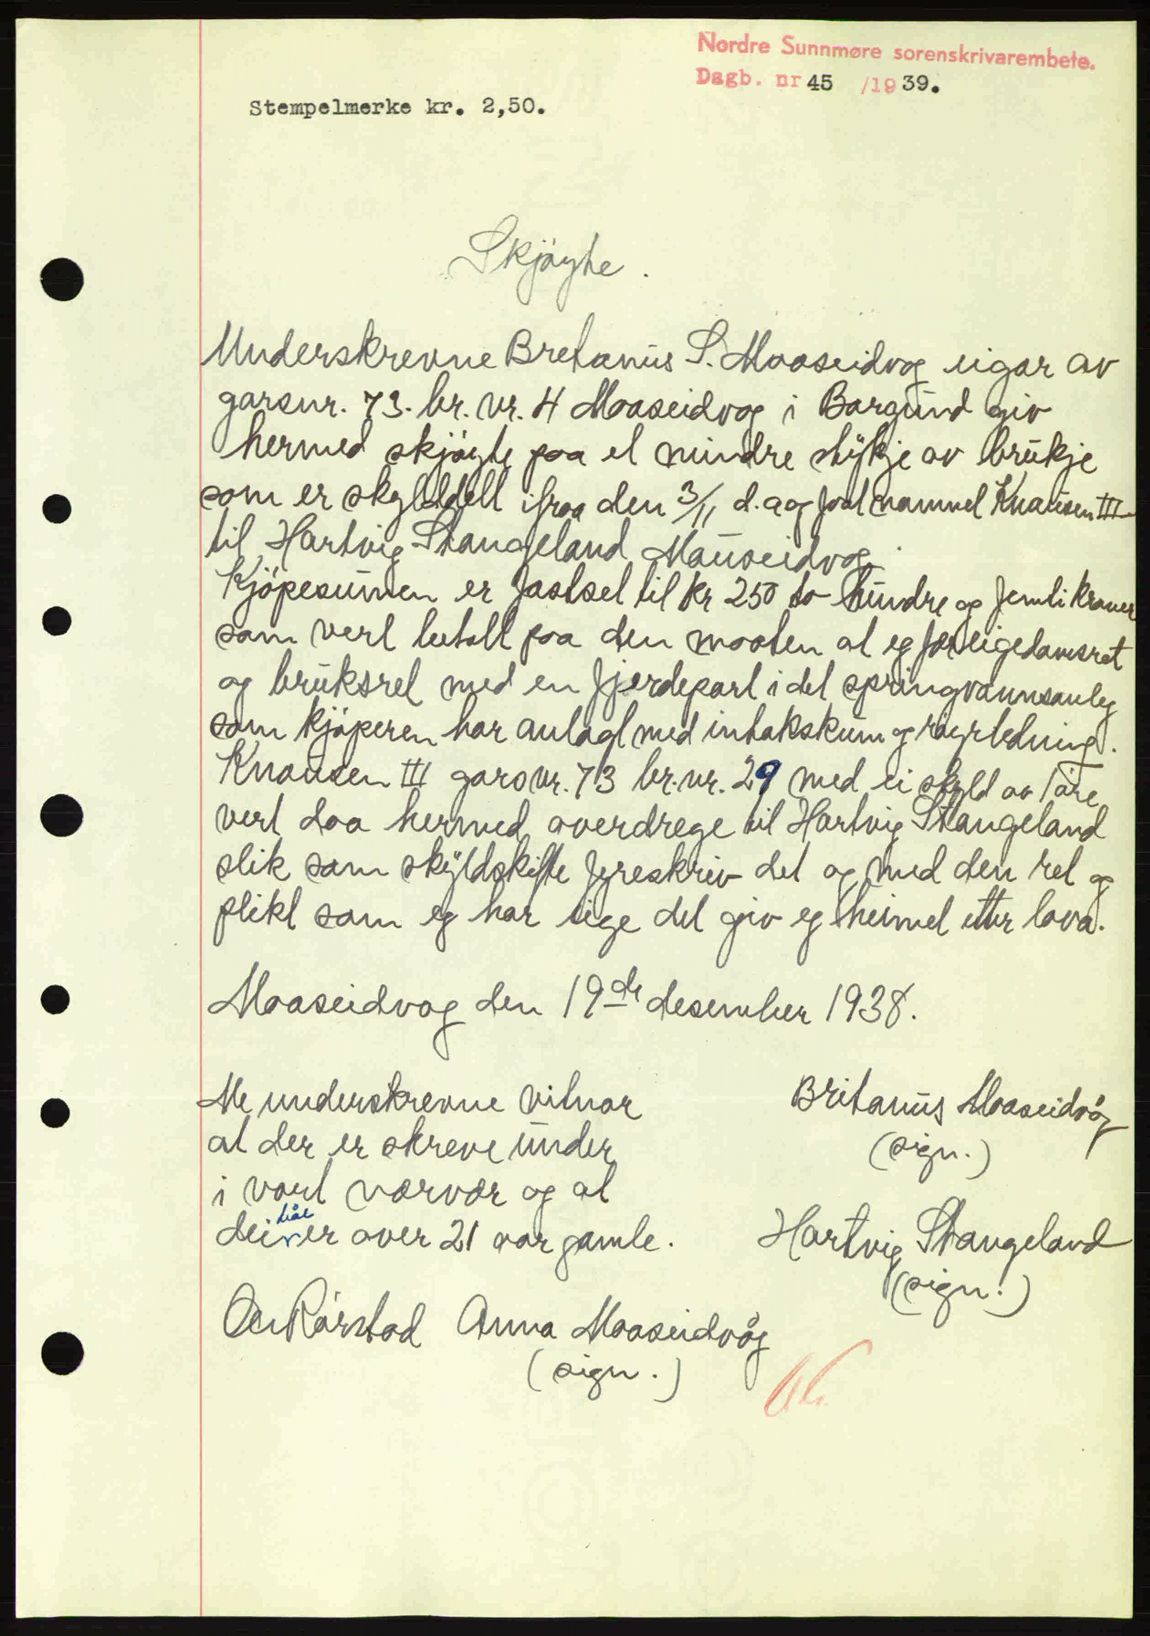 Nordre Sunnmøre sorenskrivarembete.
Dagb. nr 45 /1939.
Stempelmerke kr. 2,50.
Skjøyte.
Underskrevne Bretanius S. Maaseidvog eigar av
garsnr. 73. br. nr. 4 Maaseidvog i Borgund giv
hermed skjøyte paa et mindre stykje av brukje
som er skylddelt ifraa den 3/11 d.a og faat namnet Knausen III
til Hartvig Stangeland Mauseidvog.
Kjøpesumen er fastset til kr 250 to hundre og femti kroner
som vert betalt paa den maaten at eg fær eigedomsret
og bruksret med en fjerdepart i det springvannsanleg
som kjøperen har anlagt med intakskum og røyrledning.
Knausen III garsnr. 73 br. nr. 29 med ei skyld av 1 øre
vert daa hermed overdrege til Hartvig Stangeland
slik som skyldskifte fyreskriv det og med den ret og
plikt som eg har eige det giv eg heimel etter lova.
Maaseidvog den 19de desember 1938.
Me underskrevne vitnar
at der er skreve under
i vort nærvær og at
dei båe er over 21 aar gamle.
Britanius Maaseidvåg
(sign.)
Hartvig Stangeland
(sign.)
Rørstad Anna Maaseidvåg
(sign.)